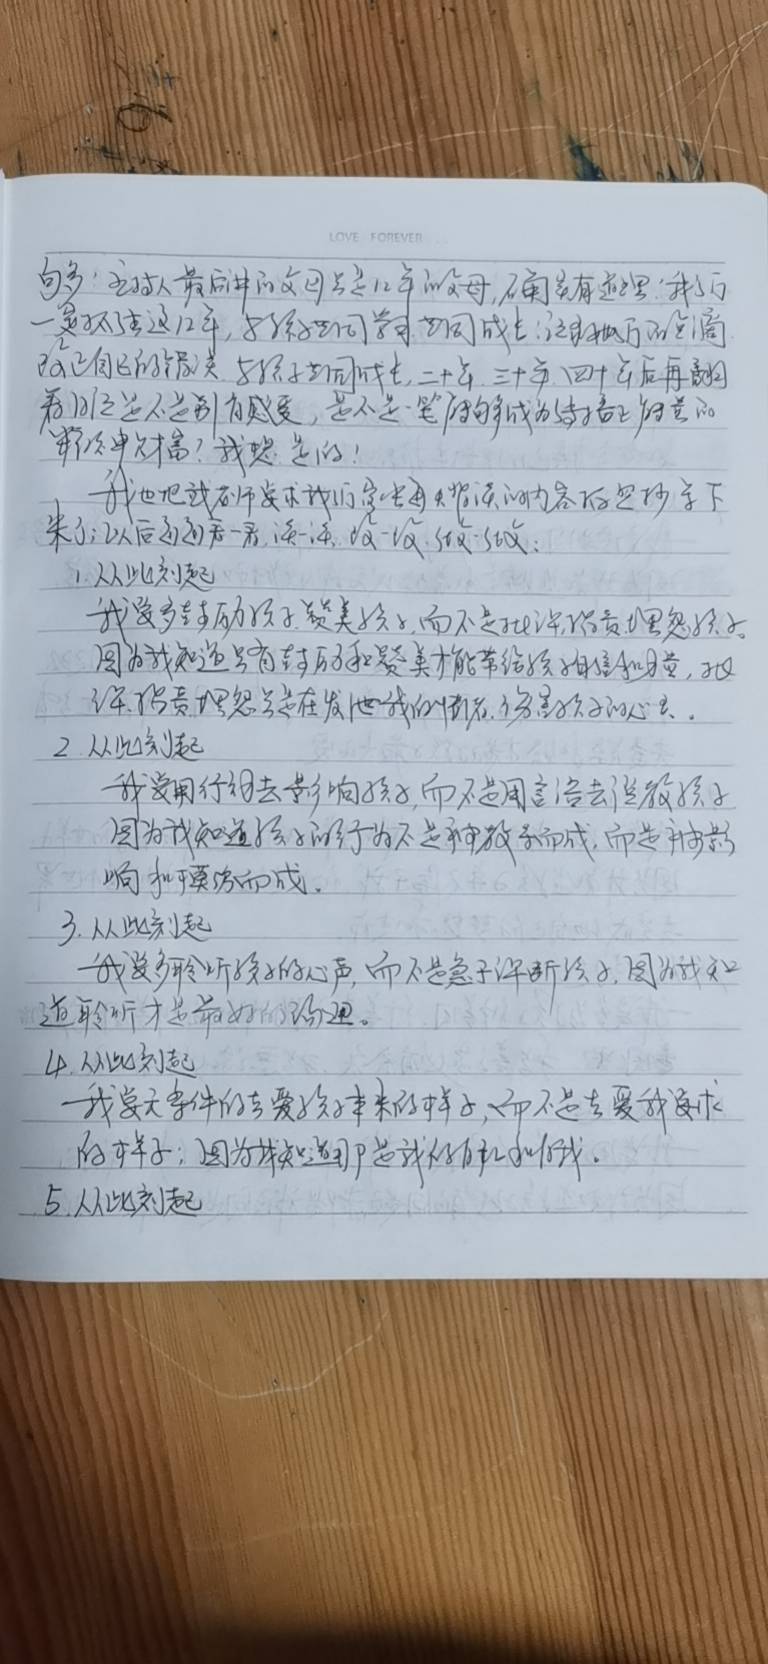 LOVE FOREVER
主持人最后讲的父母只是12年的父母,确实有道理!我们
一定抓住这12年,与孩子共同学习共同成长!记录
改正自己的错误 与孩子共同成长,二十年 三十年 四十年后再翻
看 是不是别有感受,是不是一笔
财富?我想是的!
我也把 老师要求我们 每天 读的内容 抄写下
来了;以后通通看一看,读一读,改一改,做一做:
1.从此刻起
我要多鼓励孩子,赞美孩子,而不是批评、指责、埋怨孩子。
因为我知道只有鼓励和赞美才能带给孩子自信和力量,批
评、指责、埋怨只是在发泄我的情绪、伤害孩子的心灵。
2.从此刻起
我要用行动去影响孩子,而不是用言语去说教孩子
因为我知道孩子的行为不是被教导而成,而是被影
响和模仿而成。
3.从此刻起
我要多聆听孩子的心声,而不是急于评断孩子,因为我知
道聆听才是最好的沟通。
4.从此刻起
我要无条件的去爱孩子本来的样子,而不是去爱我要求
的样子;因为我知道那是我的自私和
5.从此刻起